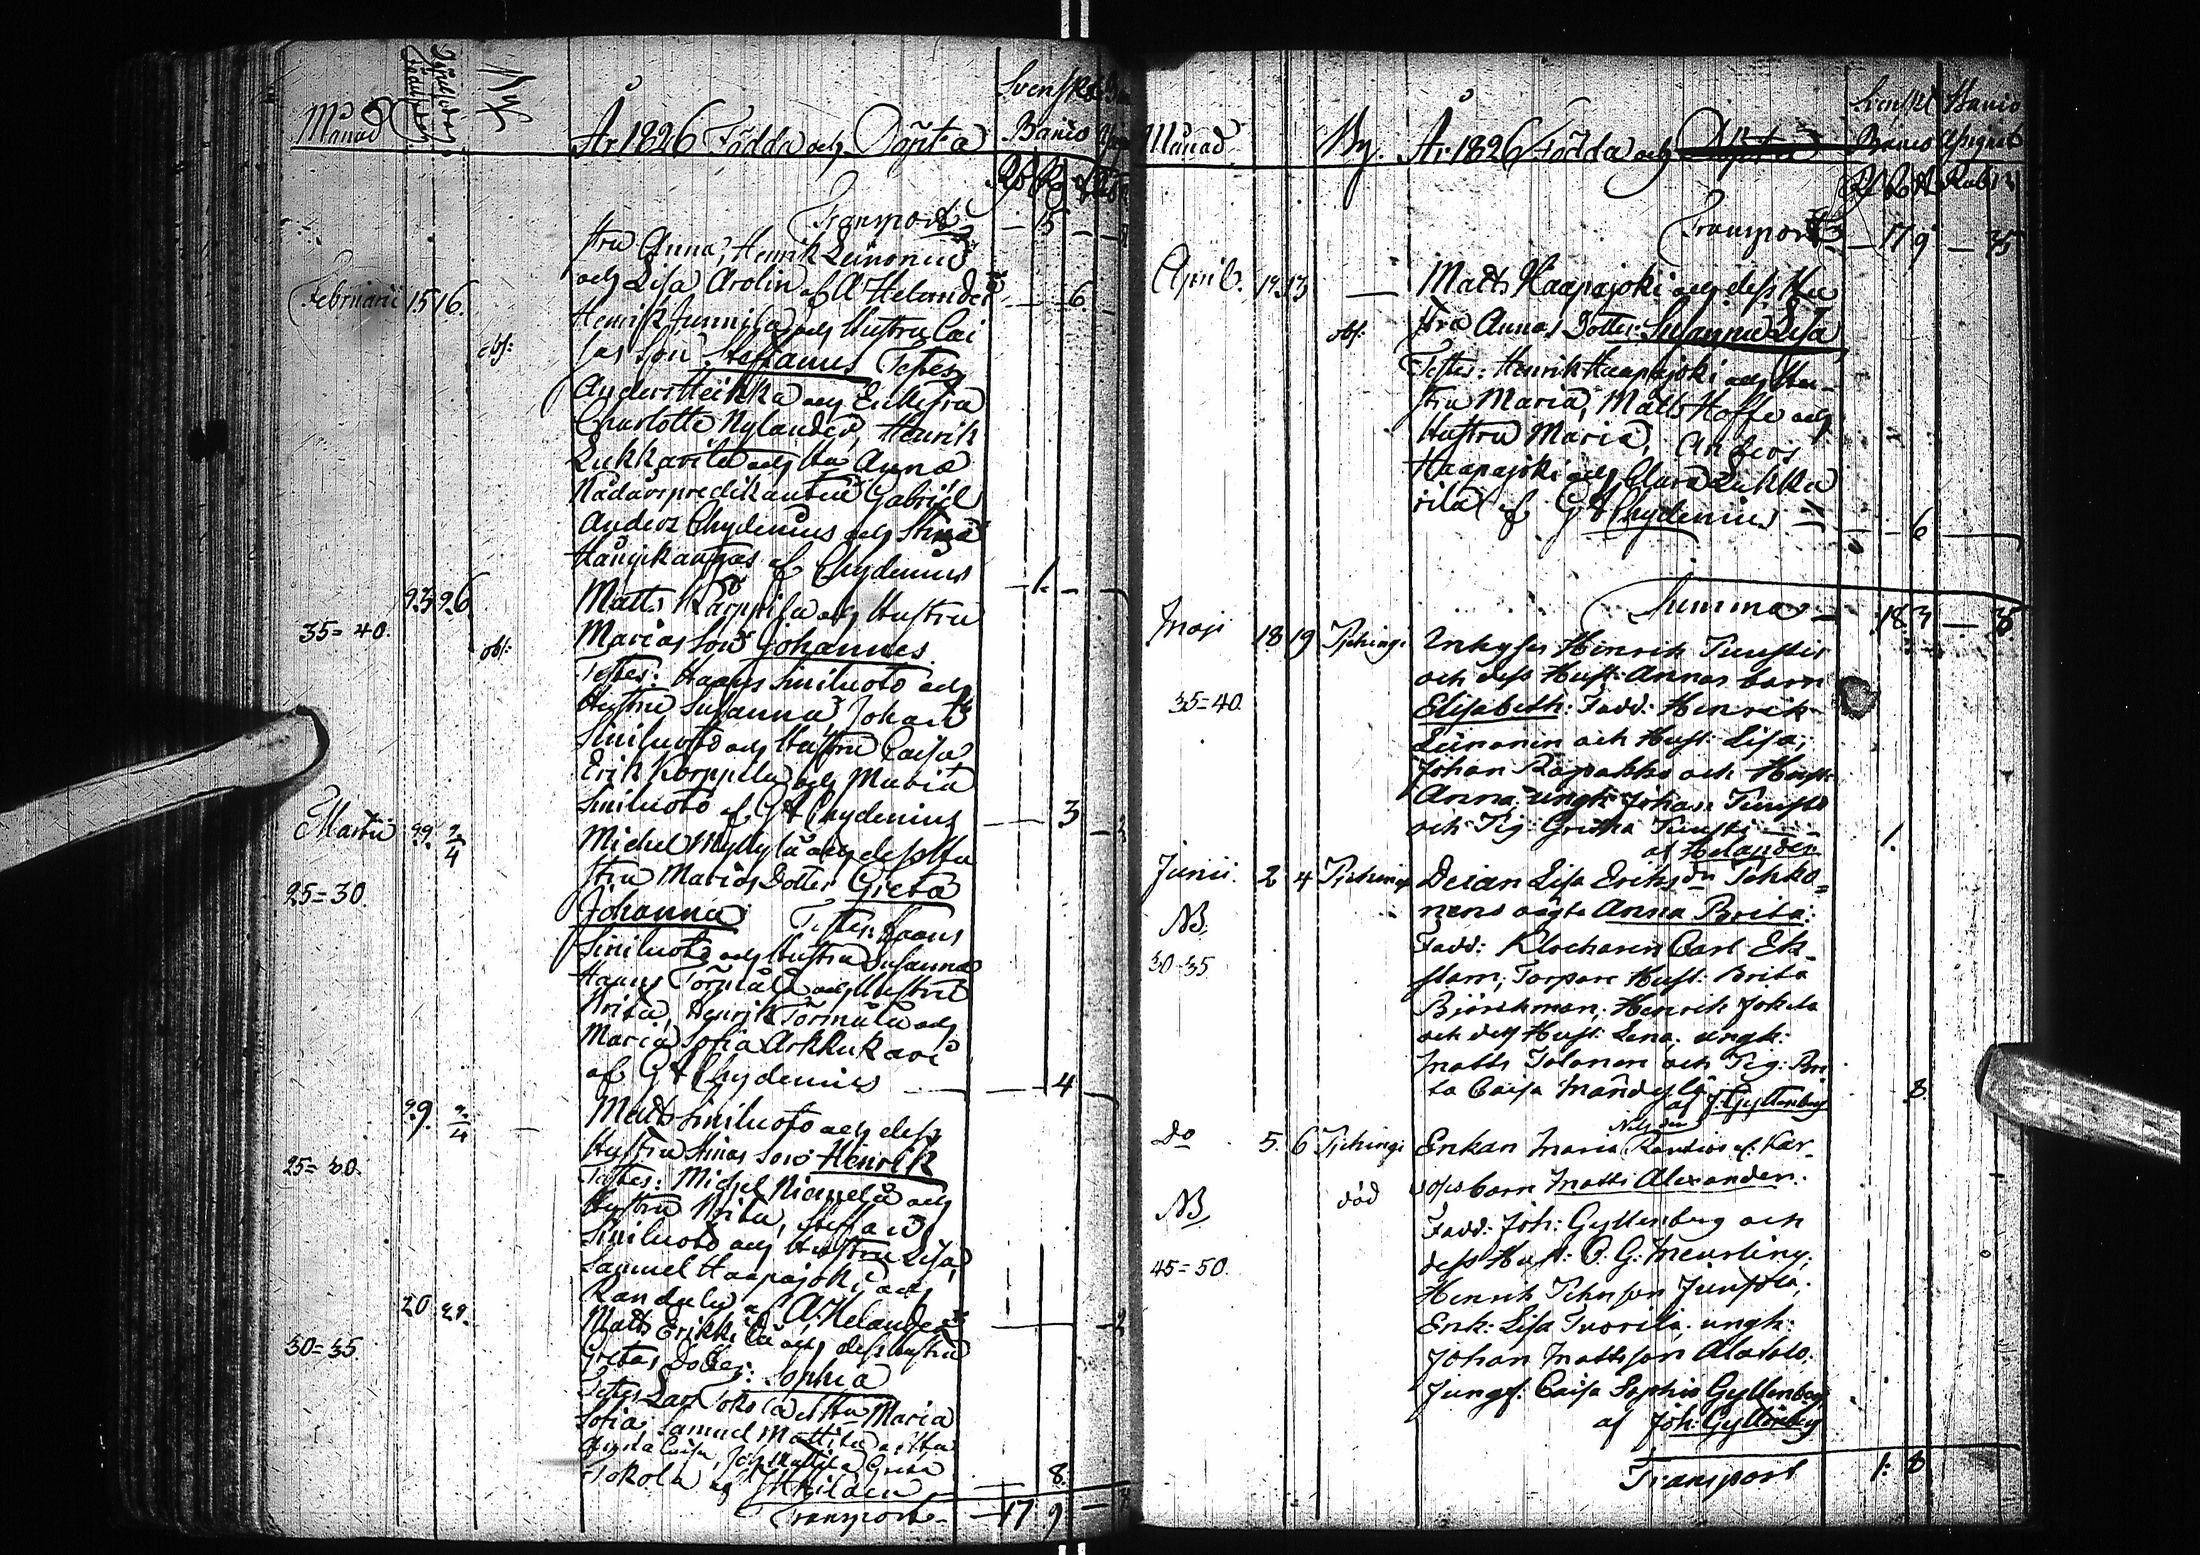 Månad
År 1826 Födda och Döpta
Svenskt
Banco
Transport
15
stru Anna, Henrik Leinonen
och Lisa Arolin af A Helander
6
Februarii 15 16.
Henrik Junnila och Hustru Cai
obs:
sas Son Steffanus Testes
Anders Heikka och Enkefru
Charlotta Nylander, Henrik
Lukkarila och Hu Anna
Nådårspredikanten Gabriel
Anders Chydenius och Stina
Hangaskangas af Chydenius
1.
23 26
Matts Karppila och Hustru
35=40.
obs:
Marias Son Johannes
Testes: Hans Siniluoto och
Hustru Susanna, Johan
Siniluoto och Hustru Caisa,
Erik Korppila och Maria
Siniluoto af G A Chydenius
3
Martii 29. 2/4
Michel Myllylä och dess Hu
stru Marias Dotter Greta
25=30.
Johanna Testes: Hans
Siniluoto och Hustru Susanna
Hans Törmälä och Hustru
Brita, Henrik Törmälä och
Maria Sofia Arkkukari
af G A Chydenius
4
29. 2/4
Matts Siniluoto och dess
Hustru Stinas Son Henrik
25=30.
Testes: Michel Niemelä och
Hustru Brita, Steffan
Siniluoto och Hustru Lisa,
Samuel Haapajoki och
Randulin af A. Helander
20 29.
Matts Erikkilä och dess hustru
30=35.
Gretas Dotter: Sophia
Testes Lars Tokola et Hu Maria
Sofia, Samuel Mattila et Hu
Caisa, Joh Mattila Greta
Tokola af
8.
Transport 17 9

Månad
By.
År 1826 Födda och Döpta
Svenskt Banco
Banco Assignat
Transport 17 9 35
April. 12 13
Matts Haapajoki och dess Hu
obs:
stru Annas Dotter Susanna Lisa
Testes: Henrik Haapajoki och Hu-
stru Maria, Matts Hoffe och
Hustru Maria, Anders
Haapajoki och Clara Lukka
rila af G A Chydenius
6
Summa 18 3 35
Maji 18 19 Pyhingi
Inhyses Hinrik Tunstis
och dess Hust: Annas barn
35=40.
Elisabeth: Fadd: Henrik
Leinonen och Hust: Lisa;
Johan Rapakko och Hust:
Anna; ungk: Johan Tunsto
och Pig: Gretha Tunsti
af Helander
1.
Junii. 2 4 Pyhingi
Deian Lisa Eriksdr Tohko=
nens oägta Anna Brita:
NB.
Fadd: Klockaren Carl Ek-
30-35
stam; Torpare Hust: Brita
Björckman; Henrik Jokela
och dess Hust: Lena; ungk:
Matts Tolonen och Pig: Bri
ta Caisa Mändylä
af J: Gyllenberg
8.
Do 5. 6 Pyhingi
Nilsdr
Enkan Maria Rantios af: Kar-
död
sops barn Matts Alexander.
NB.
Fadd: Joh: Gyllenberg och
dess Hust: C. G: Meurling;
45=50.
Henrik Pehrson Junsola;
Enk: Lisa Tuorila; ungk:
Johan Mattsson Alatalo.
Jungf: Caisa Sophia Gyllenberg
af Joh: Gyllenberg
Transport 1: 8